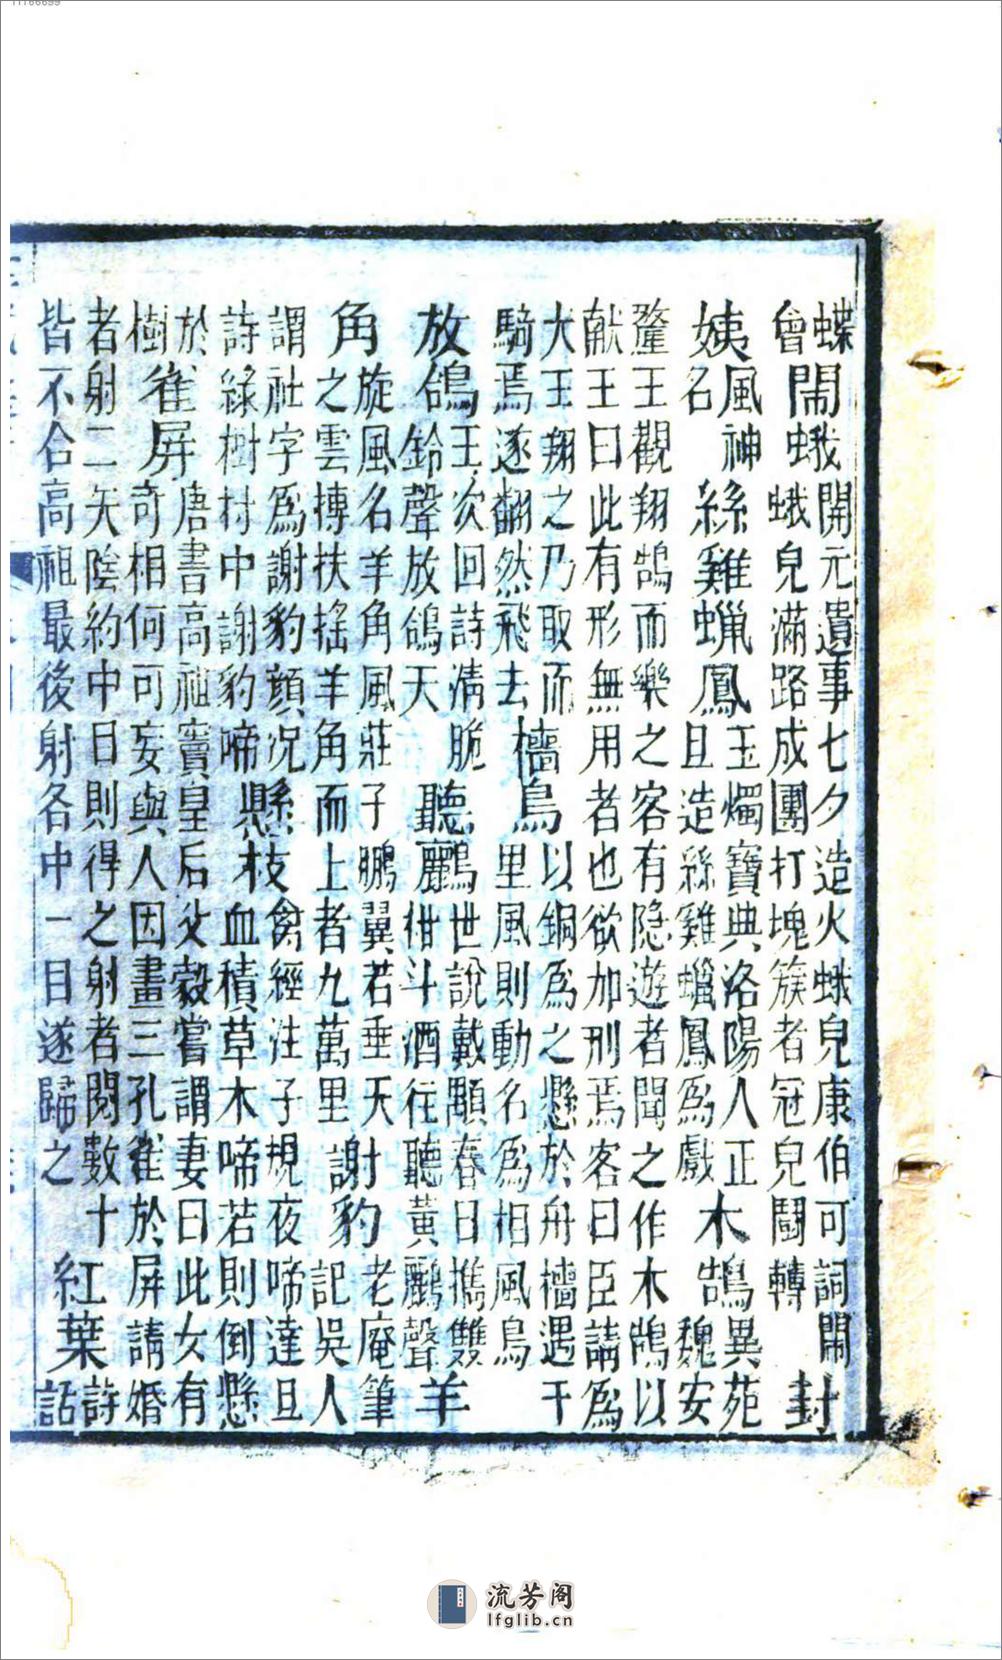 蝶
會
閙蛾
開元遺事七夕造火蛾兒康伯可詞閙
蛾兒滿路成團打塊簇者冠兒鬪轉
封
姨
風神
名
絲雞蠟鳳
玉燭寶典洛陽人正
且造絲雞蠟鳳爲戲
木鵠
異苑
魏安
釐王觀翔鵠而樂之客有隐遊者聞之作木鵠以
献王曰此有形無用者也欲加刑焉客曰臣請爲
大王翔之乃取而
騎焉遂翻然飛去
檣烏
以銅爲之懸於舟檣遇千
里風則動名爲相風烏
放鴿
王次回詩淸脆
鈴聲放鴿天
聽鸝
世說戴顒春日攜雙
柑斗酒往聽黃鸝聲
羊
角
旋風名羊角風莊子鵬翼若垂天
之雲摶扶搖羊角而上者九萬里
謝豹
老庵筆
記吳人
謂社字爲謝豹顔况
詩綠樹村中謝豹啼
懸枝
禽經注子規夜啼達旦
血積草木啼若則倒懸
於
樹
雀屏
唐書高祖竇皇后父毅嘗謂妻曰此女有
奇相何可妄與人因畫三孔雀於屏請婚
者射二矢陰約中目則得之射者閱數十
皆不合高祖最後射各中一目遂歸之
紅葉
詩
話
流芳阁
lfglib.cn